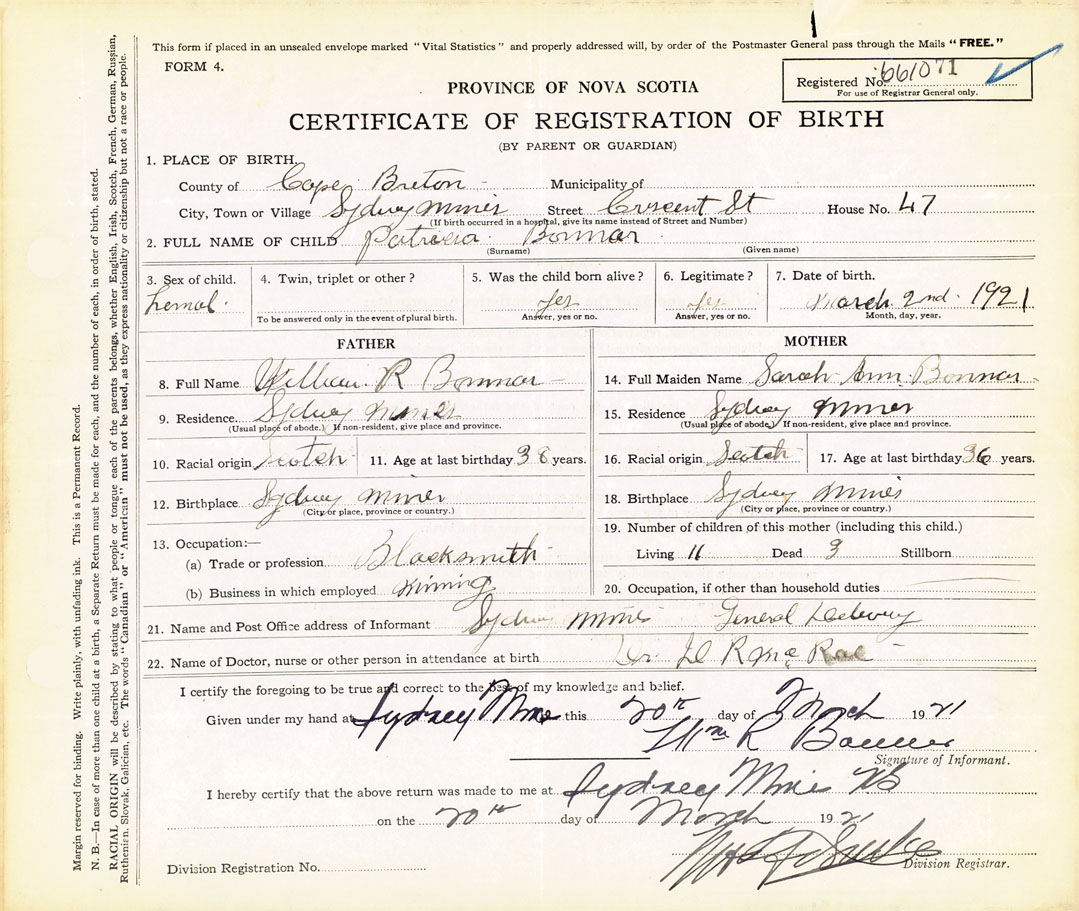 This form if placed in an unsealed envelope marked "Vital Statistics" and properly addressed will, by order of the Postmaster General pass through the Mails "FREE."
FORM 4.
Registered No. 661071
For use of Registrar General only.
PROVINCE OF NOVA SCOTIA
CERTIFICATE OF REGISTRATION OF BIRTH
(BY PARENT OR GUARDIAN)
1. PLACE OF BIRTH.
County of Cape Breton Municipality of
City, Town or Village Sydney Mines Street Crescent St House No. 47
(If birth occurred in a hospital, give its name instead of Street and Number)
2. FULL NAME OF CHILD Patricia Bonnar
(Surname) (Given name)
3. Sex of child. 4. Twin, triplet or other? 5. Was the child born alive? 6. Legitimate? 7. Date of birth.
Femal Yes Yes March 2nd 1921
To be answered only in the event of plural birth. Answer, yes or no. Answer, yes or no. Month, day, year.
FATHER
8. Full Name William R Bonnar
9. Residence. Sydney Mines
(Usual place of abode.) If non-resident, give place and province.
10. Racial origin Scotch 11. Age at last birthday 38 years.
12. Birthplace Sydney Mines
(City or place, province or country.)
13. Occupation:—
(a) Trade or profession Blacksmith
(b) Business in which employed Mining
MOTHER
14. Full Maiden Name Sarah Ann Bonnar
15. Residence Sydney Mines
(Usual place of abode.) If non-resident, give place and province.
16. Racial origin Scotch 17. Age at last birthday 36 years.
18. Birthplace Sydney Mines
(City or place, province or country.)
19. Number of children of this mother (including this child.)
Living 11 Dead 3 Stillborn
20. Occupation, if other than household duties
21. Name and Post Office address of Informant Sydney Mines General
22. Name of Doctor, nurse or other person in attendance at birth Dr. Mc Rae
I certify the foregoing to be true and correct to the best of my knowledge and belief.
Given under my hand at Sydney Mines this 20th day of March 1921
Wm R Bonnar
Signature of Informant.
I hereby certify that the above return was made to me at Sydney Mines NS
on the 20th day of March 1921
Division Registration No. Division Registrar.
Margin reserved for binding. Write plainly, with unfading ink. This is a Permanent Record.
N. B.—In case of more than one child at a birth, a Separate Return must be made for each, and the number of each, in order of birth, stated.
RACIAL ORIGIN will be described by stating to what people or tongue each of the parents belongs, whether English, Irish, Scotch, French, German, Russian,
Ruthenian, Slovak, Galician, etc. The words "Canadian" or "American" must not be used, as they express nationality or citizenship but not a race or people.